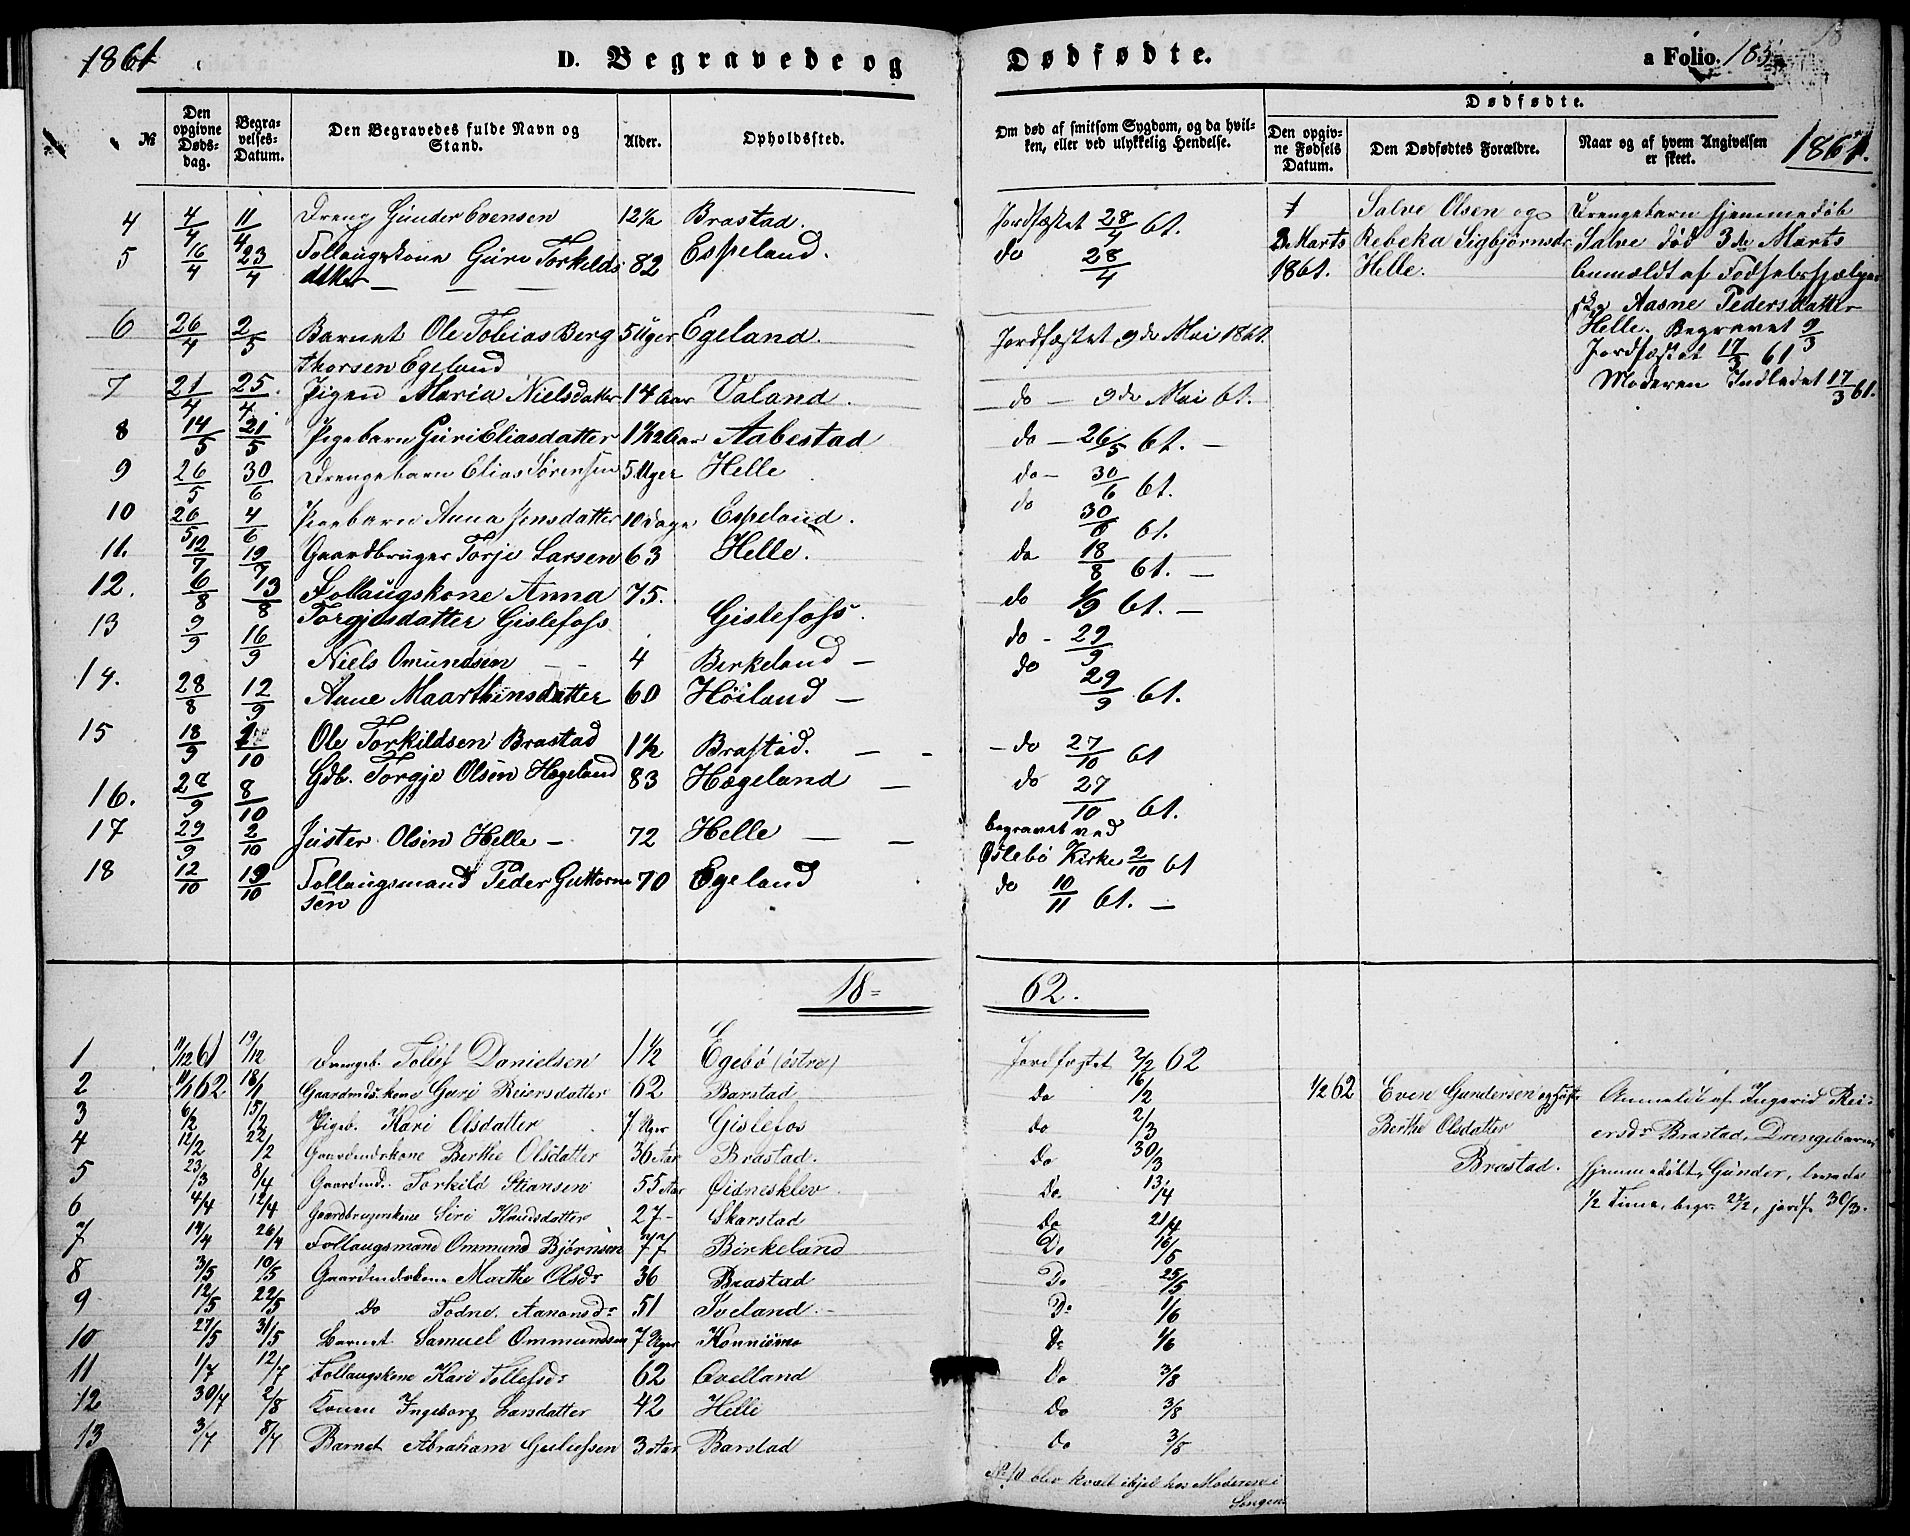 1861
D. Begravede og Dødfødte.
a Folio. 183
№
Den opgivne Døds-dag.
Begra-velses-Datum.
Den Begravedes fulde Navn og Stand.
Alder.
Opholdssted.
Om død af smitsom Sygdom, og da hvil-ken, eller ved ulykkelig Hendelse.
Dødfødte.
Den opgiv-ne Fødsels Datum.
Den Dødfødtes Forældre.
Naar og af hvem Angivelsen er skeet.
1861.
4 4/4 11/4 Dreng Gunder Evensen 12½ Brastad. Jordfæstet 28/4 61.
5 16/4 23/4 Follaugskone Guri Torkilds 82 Espeland. do 28/4
datter — — —
6 26/4 2/5 Barnet Ole Tobias Berg 5 Uger Egeland. Jordfæstet 9de Mai 1861.
thorsen Egeland
7 21/4 25/4 Pigen Maria Nielsdatter 14 Aar Valand. do — 9de Mai 61.
8 14/5 21/5 Pigebarn Guri Eliasdatter 1½ Aar Aabestad do — 26/5 61. —
9 26/5 30/6 Drengebarn Elias Sørensen 5 Uger Helle do — 30/6 61.
10 26/5 4/6 Pigebarn Anna Jensdatter 10 Dage Espeland. do 30/6 61.
11. 12/7 19/7 Gaardbruger Torje Larsen 63 Helle. do 18/8 61. —
12. 6/8 13/8 Follaugskone Anna 75. Gislefoss. do 1/9 61. —
Torgjusdatter Gislefoss
13 9/9 16/9 Niels Omundsen — — 4 Birkeland — do — 29/9
14. 28/8 12/9 Anne Maarthinsdatter 60 Höiland — do 29/9 61.
15 18/9 Ole Torkildsen Brastad 1½ Brastad. — — do 27/10 61
16. 28/9 8/10 Gdb. Torgje Olsen Hægeland 83 Hægeland — do 27/10 61.
17 29/9 2/10 Juster Olsen Helle — 72 Helle — — begravet ved
Øslebö Kirke 2/10 61
18 12/10 19/10 Follaugsmand Peder Guttorm 70 Egeland do 10/11 61. —
sen
2 Marts
1861.
Salve Olsen og
Rebeka Sigbjørnsdr
Helle.
Drengebarn hjemmedöb
Salve död 3de Marts
Anmeldt af Fødselshjelper
ske Aasne Pedersdatter
Helle. Begravet 9/3
Jordfæstet 17/3 61
Moderen Indledet 17/3 61.
18= 62.
1 11/12 61 19/12 Drengeb. Tollef Danielsen 1½ Egebö (östre) Jordfæstet 2/2 62
2 11/1 62 18/1 Gaardmdskone Guri Reiersdatter 62 Barstad Do 16/2
3 6/2 15/2 Pigeb. Kari Olsdatter 7 Uger Gislefos do 2/3
4 12/2 22/2 Gaardmdskone Berthe Olsdatter 36 Aar Brastad. Do 30/3
5 23/3 8/4 Gaardmd. Torkild Stiansen 55 Aar Øidnesklev Do. 13/4
6 4/4 12/4 Gaardbrugerskone Siri Knudsdatter 27 – Skarstad Do 21/4
7 19/4 26/4 Follaugsmand Ommund Bjørnsen 77 Birkeland Do 16/5
8 3/5 10/5 Gaardmdskone Marthe Olsdr 36 Brastad Do 25/5
9 12/5 22/5 Do Todne Aanonsdr 51 Iveland. – Do 1/6
10 27/5 31/5 Barnet Samuel Ommundsen 7 Uger Konnismo Do 1/6
11 1/7 12/7 Follaugskone Kari Tollefsdr 62 Qvelland Do 3/8
12 30/7 2/8 Konen Ingeborg Larsdatter 42 Helle Do 3/8
13 3/7 8/7 Barnet Abraham 3 Aar Barstad Do 3/8
1/2 62
Even Gundersen og Hust
Berthe Olsdatter
Brastad.
Anmeldt af Ingerid Rei-
ersdr Brastad, Drengebarnet
hjemmedøbt, Gunder, levede
½ Time, begr. 22/2, jordf. 30/3.
No 10 blev kvalt ihjel hos Moderen i
Sengen